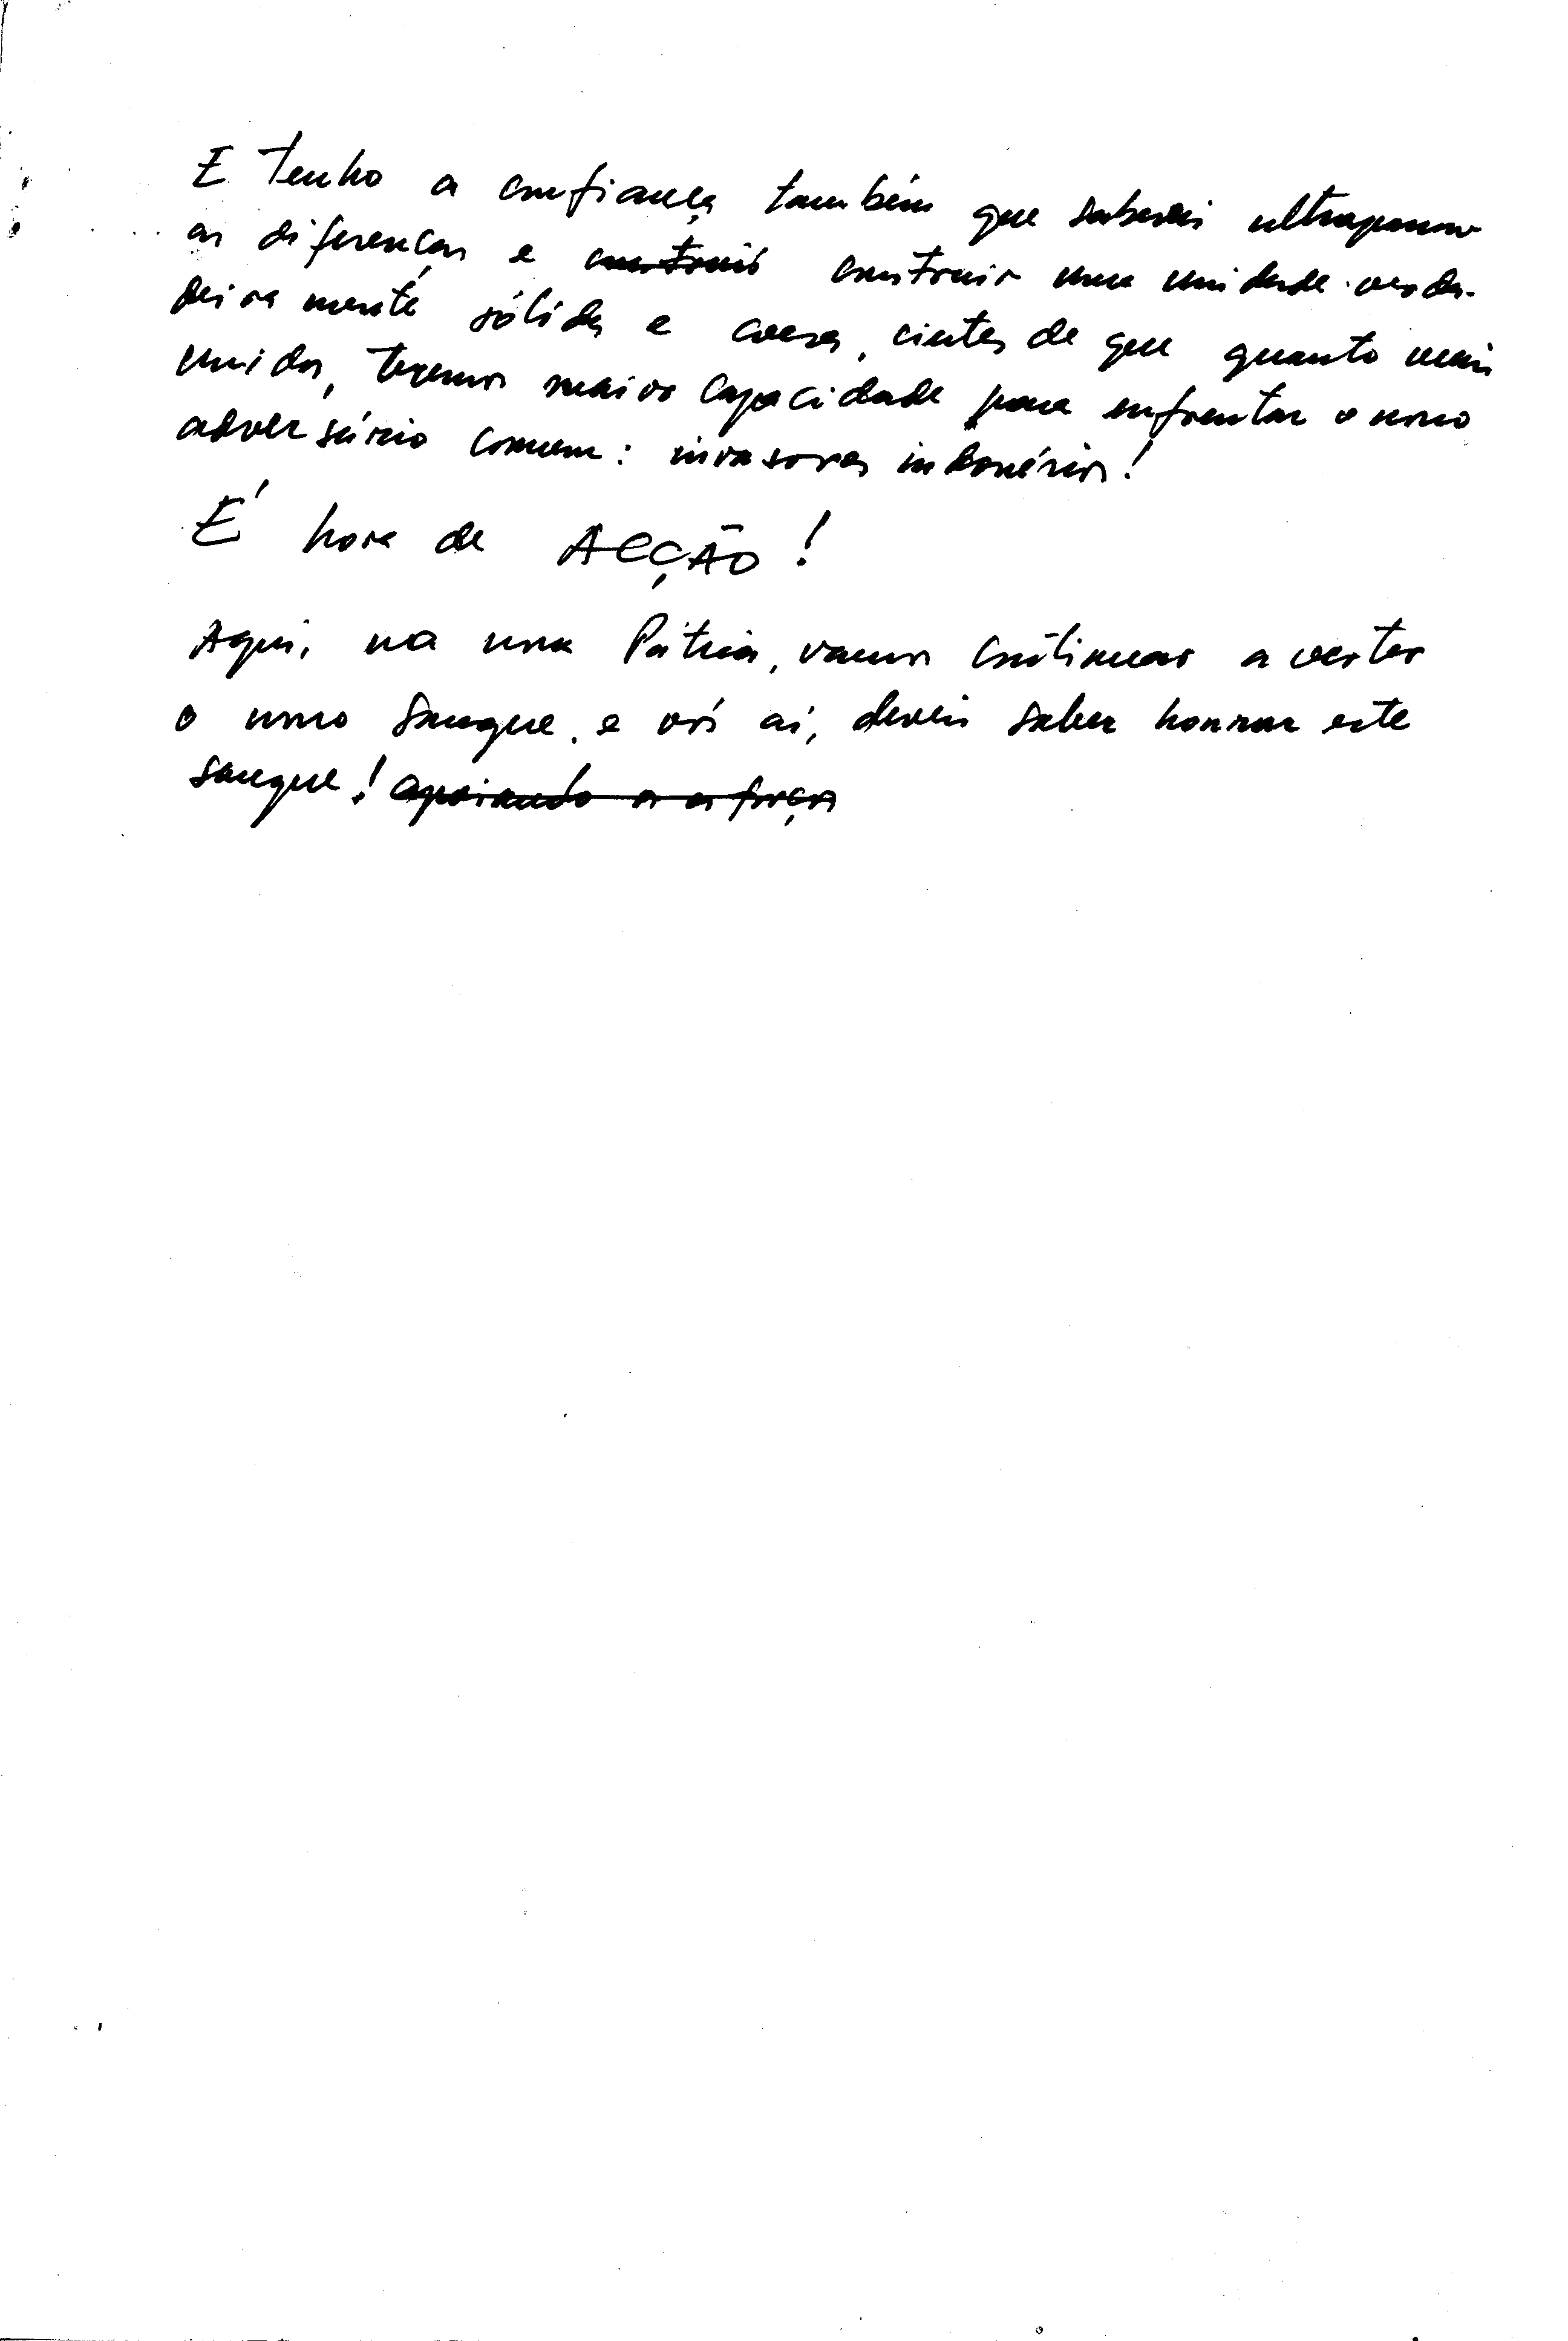 E tenho a confiança também que sabereis ultrapassar
as diferenças e construir construir uma unidade verda-
deiramente sólida e coesa, cientes de que quanto mais
unidos, teremos maior capacidade para enfrentar o nosso
adversário comum: invasores indonésios!
É hora de ACÇÃO!
Aqui, na nossa Pátria, vamos continuar a verter
o nosso sangue, e vós aí, deveis saber honrar este
sangue! apoiando as forças